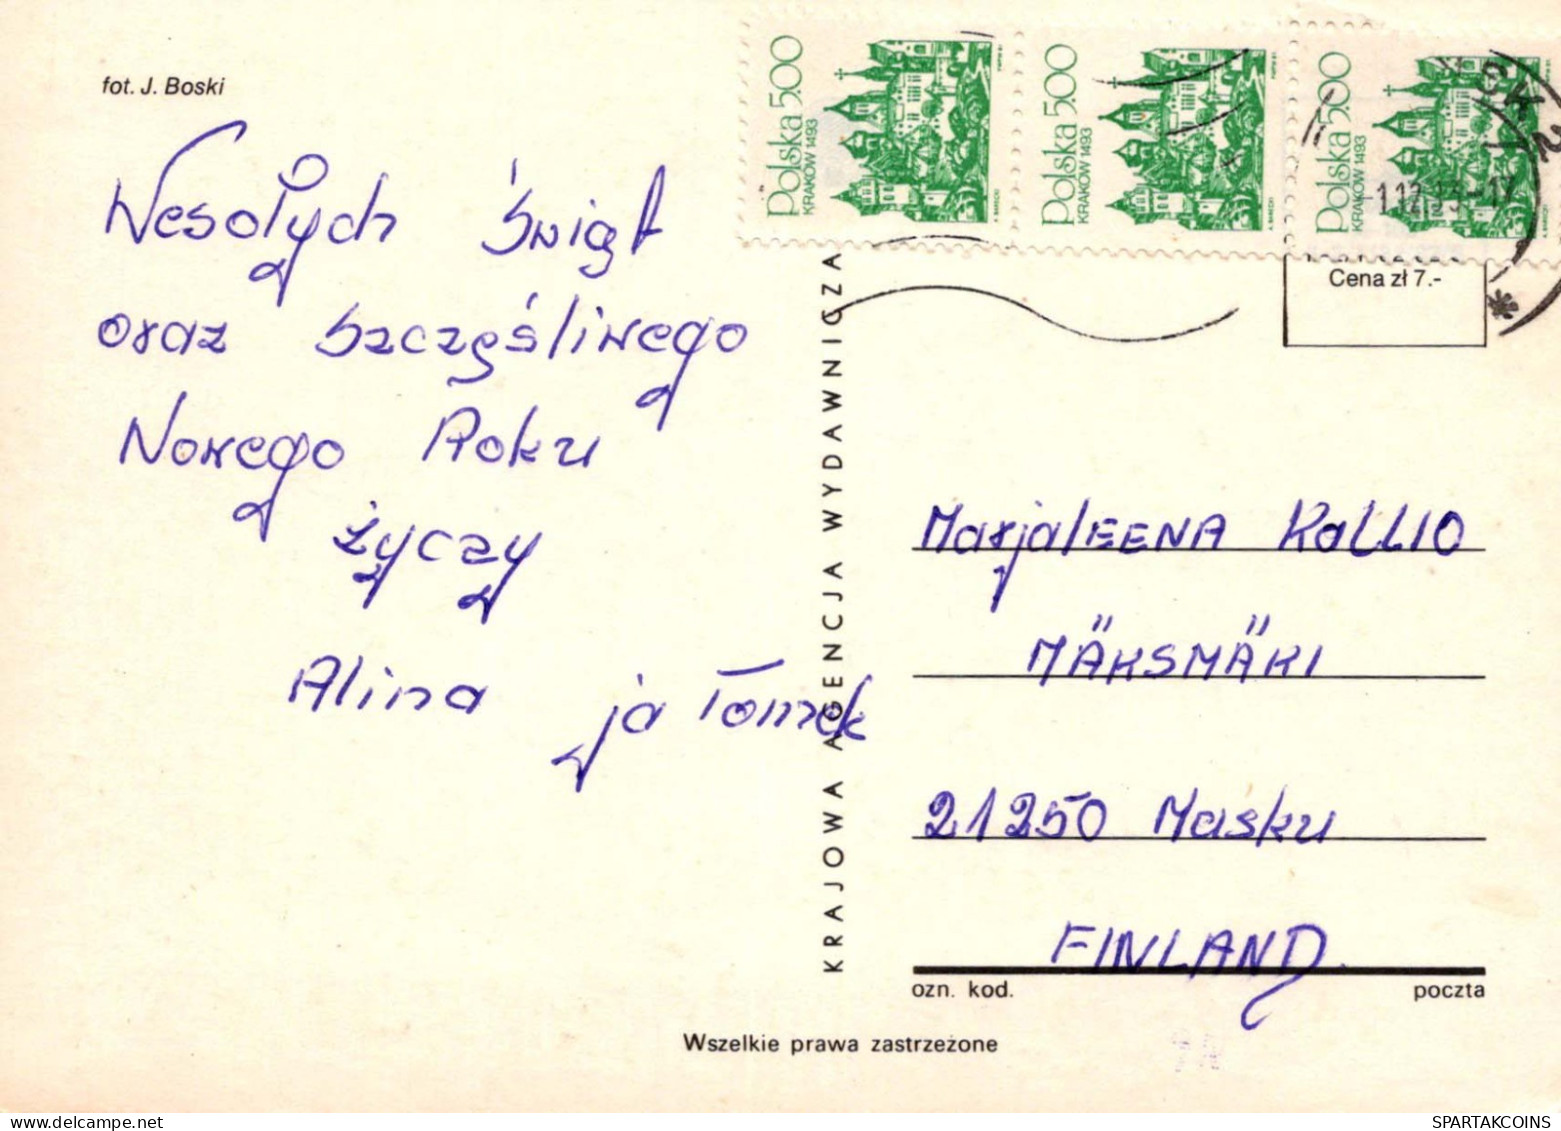 fot. J. Boski
Wesołych Świąt
oraz Szczęśliwego
Nowego Roku
życzy
Alina ja Tomek
Polska 5.00
KRAKÓW 1493
Polska 5.00
KRAKÓW 1493
Polska 5.00
KRAKÓW 1493
Cena zł 7.-
KRAJOWA AGENCJA WYDAWNICZA
MarjaLEENA KaLLIO
MÄKSMÄKI
21250 Masku
FINLAND.
ozn. kod. poczta
Wszelkie prawa zastrzeżone
SPARTAKCOINS